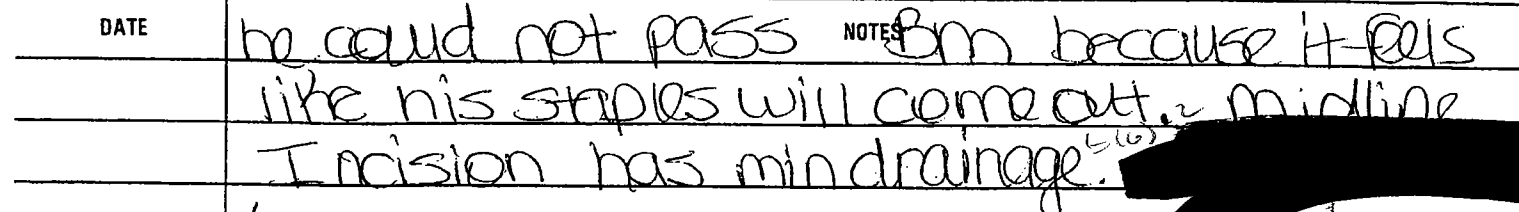 DATE NOTES
he could not pass Bm because it feels
like his staples will come out. midline
Incision has min drainage.